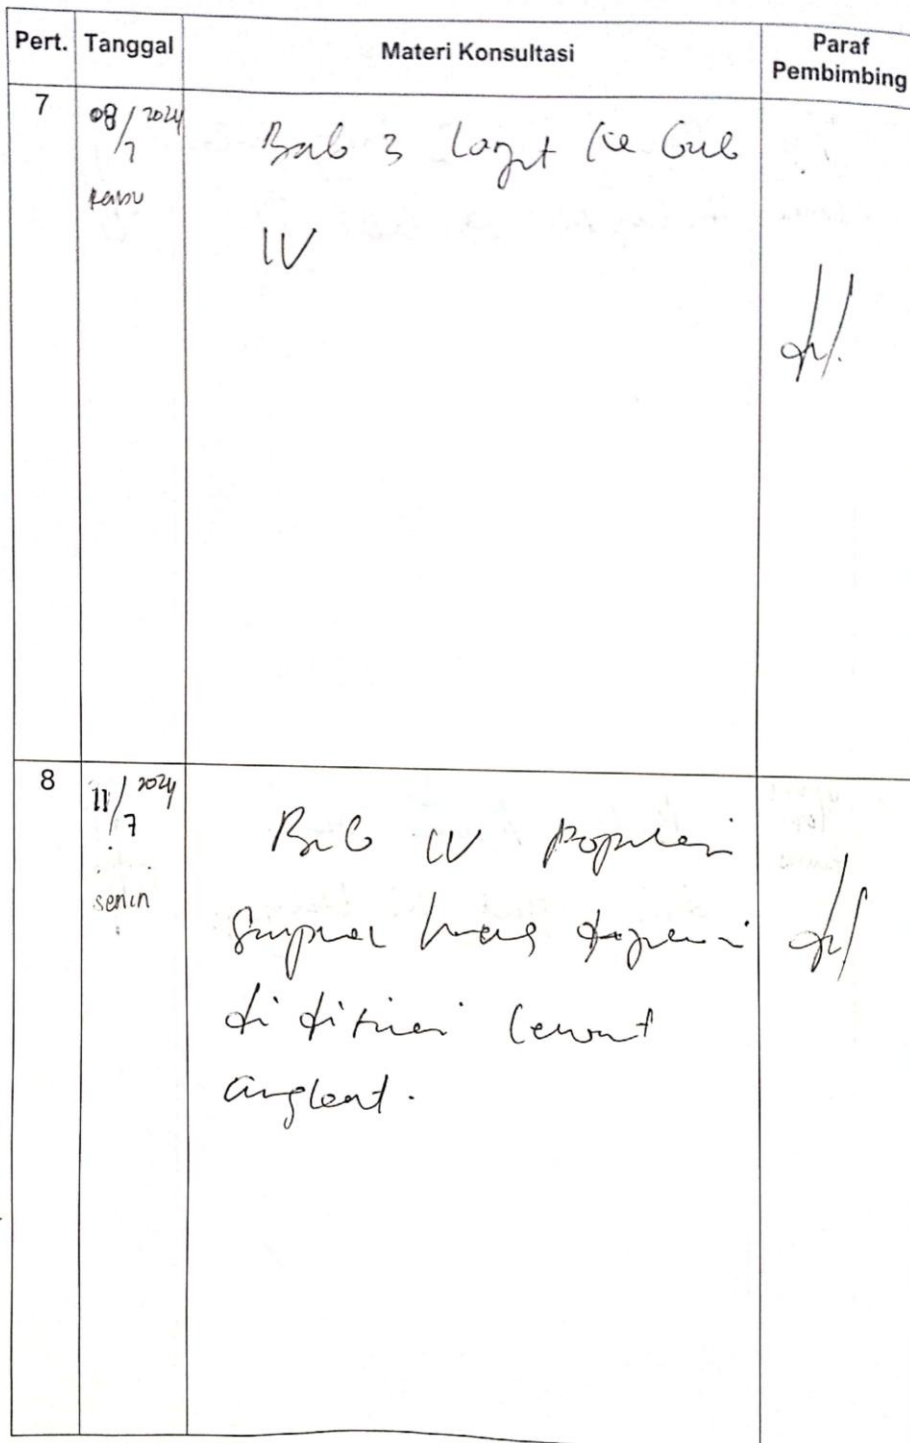 Pert. Tanggal Materi Konsultasi Paraf Pembimbing
7 08/7 2024 Bab 3 lanjut ke bab
rabu IV
8 11/7 2024 Bab IV populasi
senin
di lewat
angket.